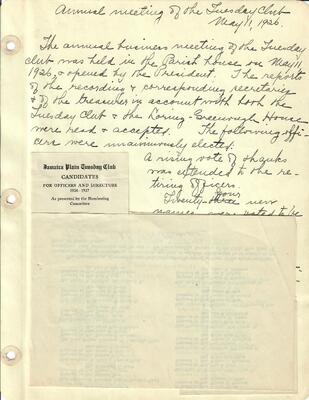 Annual meeting of the Tuesday Club
May 11, 1926.
The annual business meeting of the Tuesday
Club was held in the Parish house on May 11,
1926, & opened by the President. The reports
of the recording & corresponding secretaries
& of the treasurer in account with both the
Tuesday Club & the Loring-Greenough House
were read & accepted. The following offi-
cers were unanimously elected:
A rising vote of thanks
was extended to the re-
tiring officers.
four
Twenty-three new
names were voted to be
Jamaica Plain Tuesday Club
CANDIDATES
FOR OFFICERS AND DIRECTORS
1926-1927
As presented by the Nominating
Committee